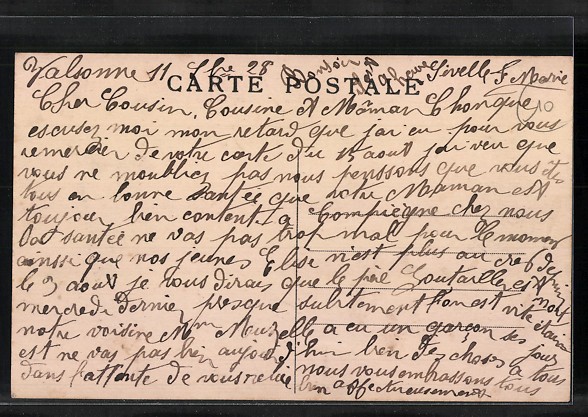 Valsonne 11 7bre 28
CARTE POSTALE
Cher Cousin, Cousine et Mâman Chonque
escusez moi mon retard que jai eu pour vous
remercier de votre carte du 15 aout jai veu que
vous ne moubliez pas nous penssons que vous êtes
tous en bonne santée que votre Maman est
toujour bien content a Compiegne chez nous
la santée ne vas pas trop mall pour le moment
ainssi que nos jeunes Elise n'est plus au
le 3 aout je vous dirais que le peré est mort
mercredi dernier presque subitement lon est vite
notre voisine Mme elle a eu un garçon ses jour
est ne vas pas bien aujourd'hui bien des choses a tous
dans l'attente de vous relire nous vous embrassons tous
bien affectueusement